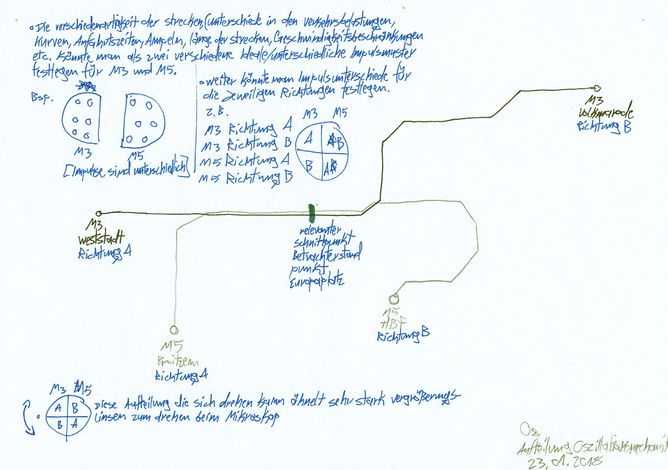 • Die verschiedenartigkeit der strecken/unterschiede in den verkehrsbelastungen,
Kurven, Anfahrtszeiten, Ampeln, länge der strecken, Geschwindigkeitsbeschränkungen
etc. könnte man als zwei verschiedene Ideale/unterschiedliche Impulsmuster
festlegen für M3 und M5.
Bsp.
M3 M5
[Impulse sind unterschiedlich]
• weiter könnte man Impulsunterschiede für
die Jeweiligen Richtungen festlegen.
z.B.
M3 Richtung A
M3 Richtung B
M5 Richtung A
M5 Richtung B
M3 M5
A B
B A
M3
Volkmarode
Richtung B
M3
Weststadt
Richtung A
relevanter
schnittpunkt
Betrachterstand
punkt
Europaplatz
M5
HBF
Richtung B
M5
Richtung A
M3 M5
A B
B A
Diese Aufteilung die sich drehen kann ähnelt sehr stark vergrößerungs
linsen zum drehen beim Mikroskop
Aufteilung
23.01.2018